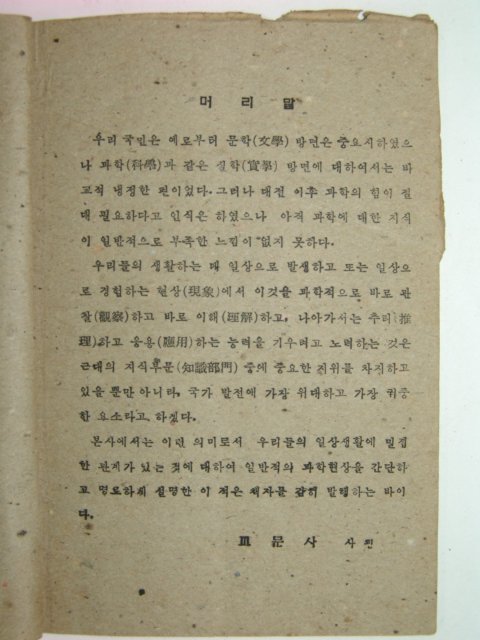 머리말
우리 국민은 예로부터 문학(文學) 방면은 중요시하였으
나 과학(科學)과 같은 실학(實學) 방면에 대하여서는 비
교적 냉정한 편이었다. 그러나 대전 이후 과학의 힘이 절
대 필요하다고 인식은 하였으나 아직 과학에 대한 지식
이 일반적으로 부족한 느낌이 없지 못하다.
우리들의 생활하는 데 일상으로 발생하고 또는 일상으
로 경험하는 현상(現象)에서 이것을 과학적으로 바로 관
찰(觀察)하고 바로 이해(理解)하고, 나아가서는 추리(推
理)하고 응용(應用)하는 능력을 기우려고 노력하는 것은
근대의 지식부문(知識部門) 중에 중요한 지위를 차지하고
있을 뿐만 아니라, 국가 발전에 가장 위대하고 가장 귀중
한 요소라고 하겠다.
본사에서는 이런 의미로서 우리들의 일상생활에 밀접
한 관계가 있는 것에 대하여 일반적의 과학현상을 간단하
고 명료하게 설명한 이 적은 책자를 감히 발행하는 바이
다.
문사